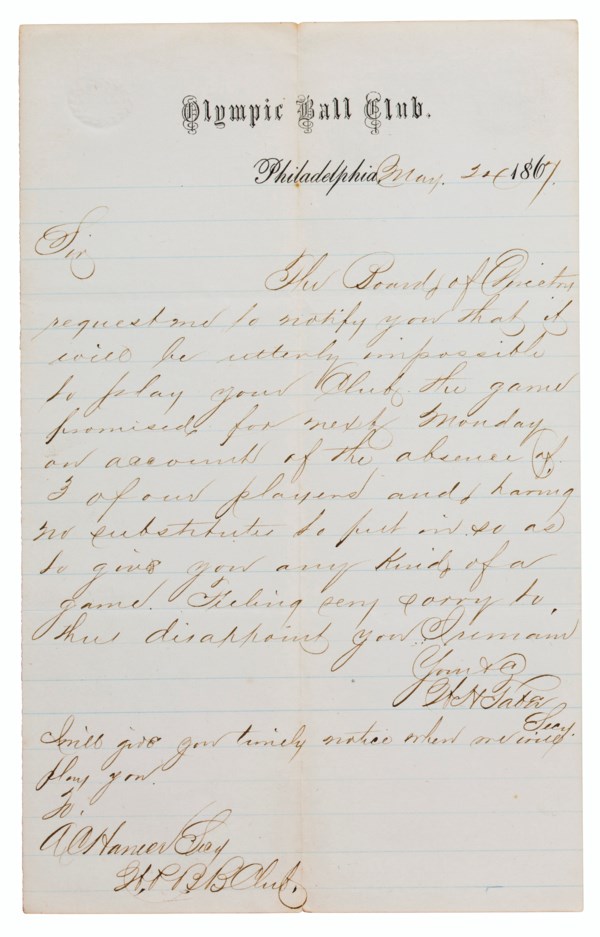 Olympic Ball Club.
Philadelphia May. 24 1867.
Sir
The Board of Directors
request me to notify you that it
will be utterly impossible
to play your Club the game
promised for next Monday
on account of the absence of
3 of our players and having
no substitutes to put in so as
to give you any kind of a
game. Feeling very sorry to
thus disappoint you I remain
Yours &c
Secy.
I will give you timely notice when we will
play you.
To.
A C Hancer Secy
B B Club.